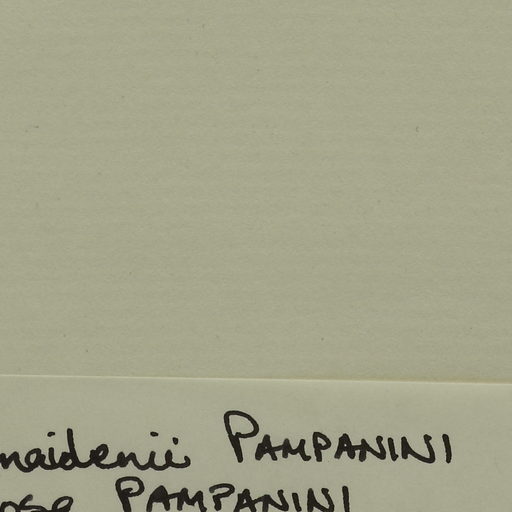 maidenii PAMPANINI
PAMPANINI